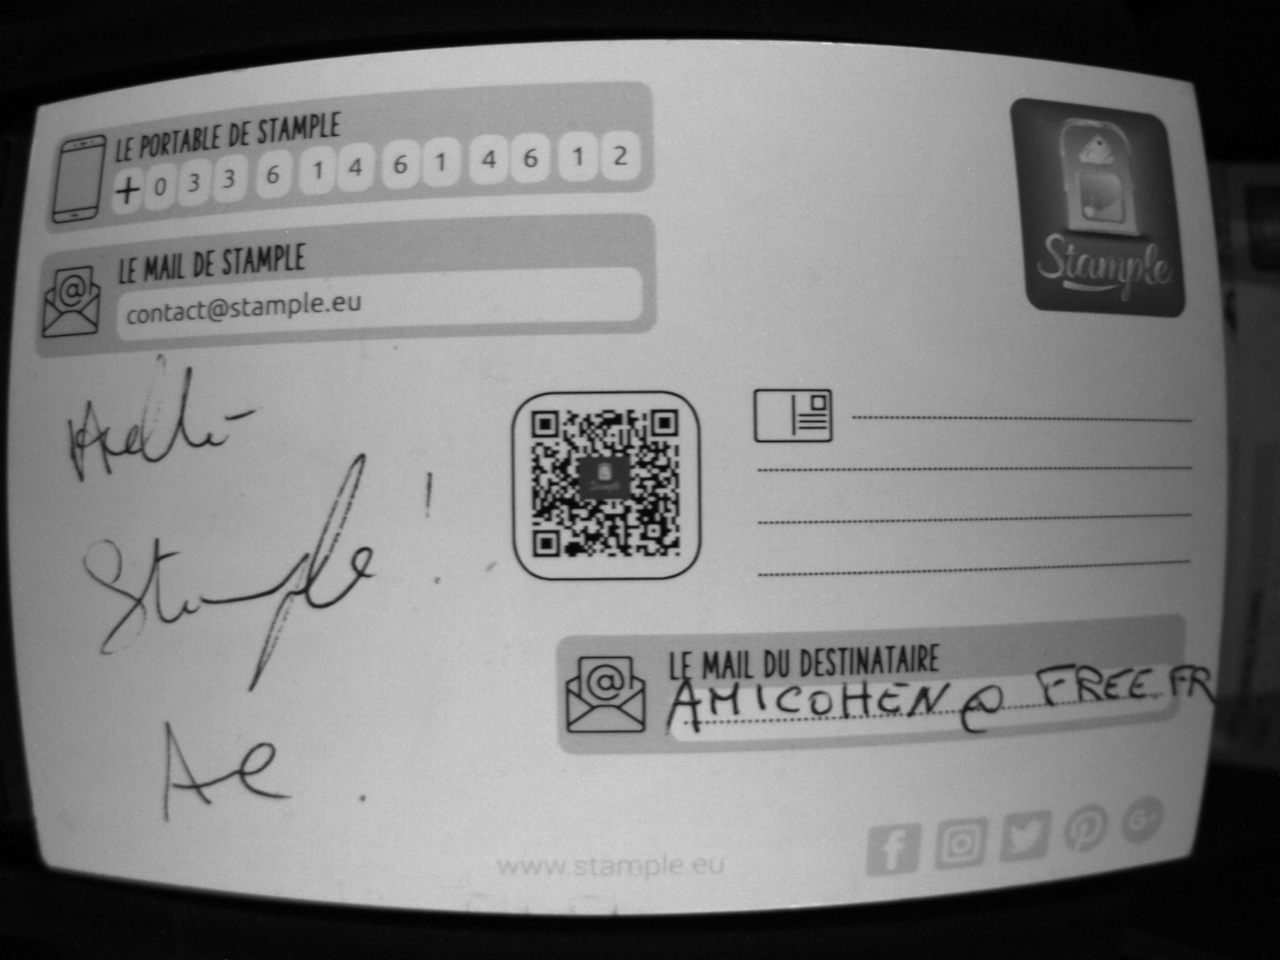 LE PORTABLE DE STAMPLE
+033614614612
LE MAIL DE STAMPLE
contact@stample.eu
Stample
Stample !
LE MAIL DU DESTINATAIRE
AMICOHEN@FREE.FR
www.stample.eu